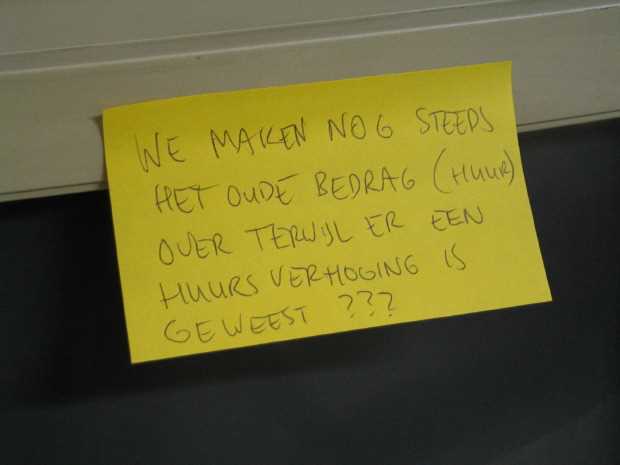 WE MAKEN NOG STEEDS
HET OUDE BEDRAG (HUUR)
OVER TERWIJL ER EEN
HUURSVERHOGING IS
GEWEEST ???